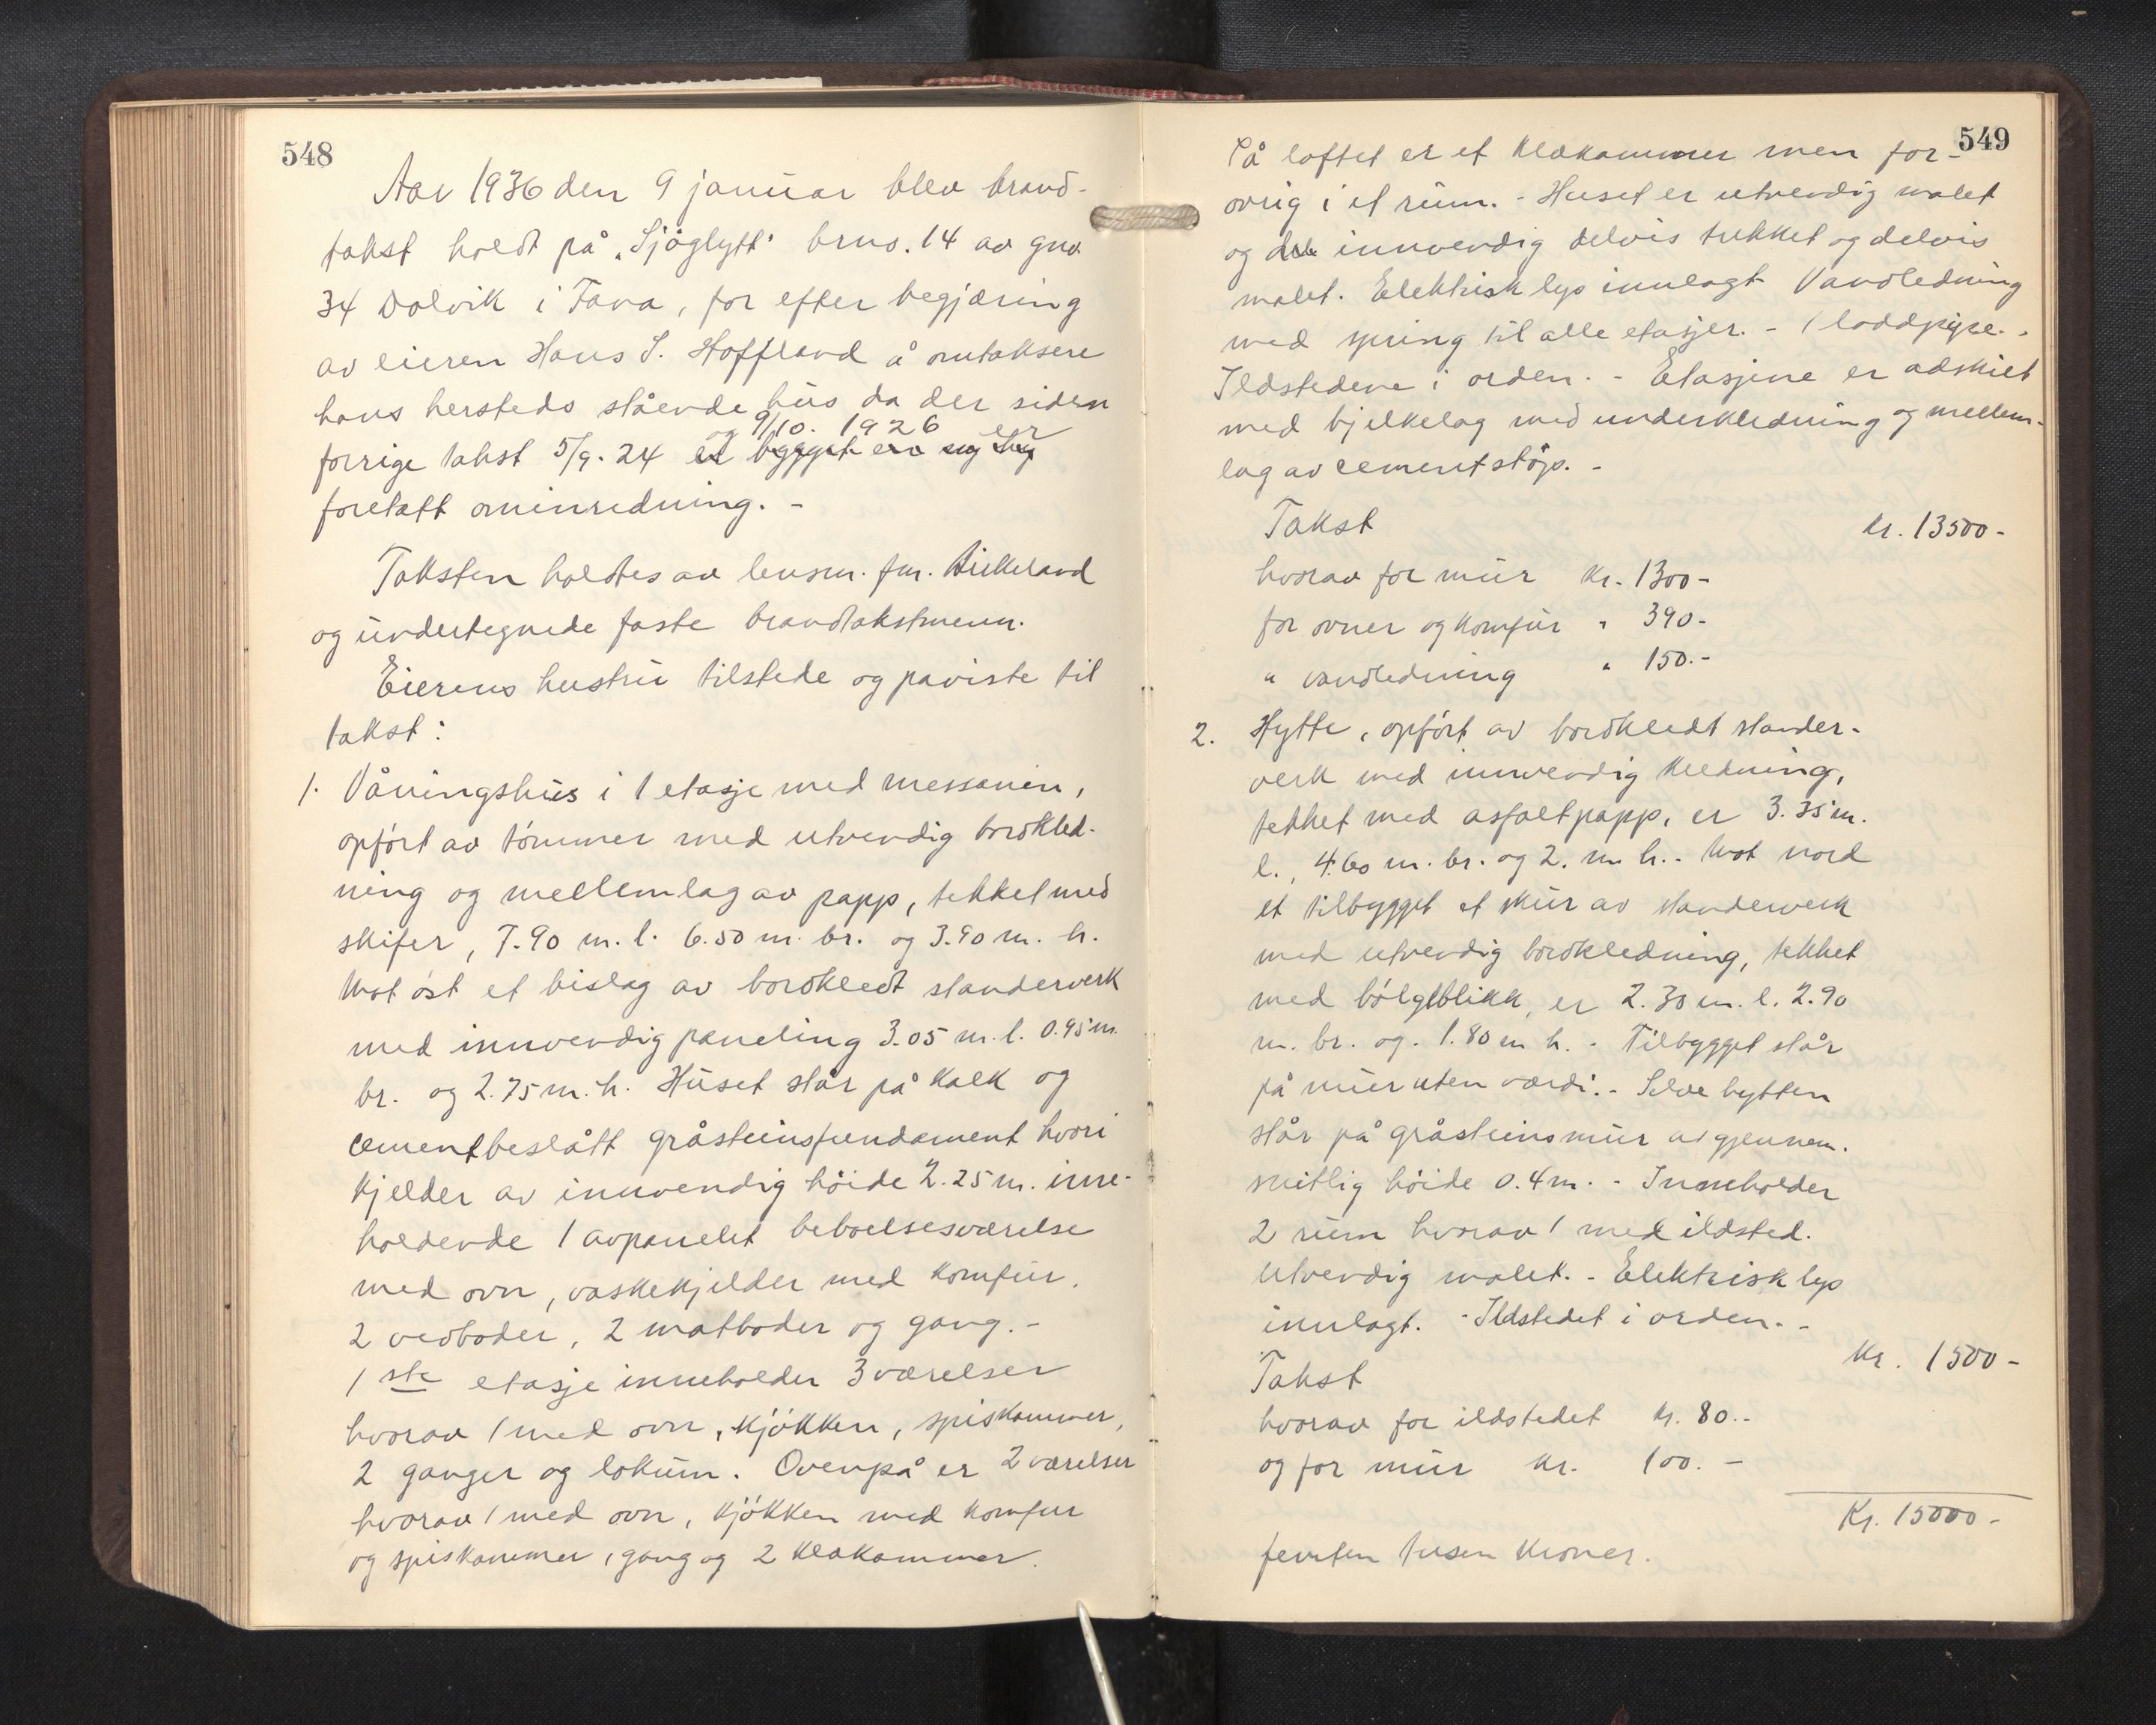 548
Aar 1936 den 9 januar blev brand-
takst holdt på "Sjøglytt" brno. 14 av gno.
34 Dolvik i Fana, for efter begjæring
av eieren Hans S. Hoffland å omtaksere
hans hersteds stående hus da der siden
og 9/10. 1926 er
forrige takst 5/9. 24
foretatt ominredning. -
Taksten holdtes av lensm. fm. Birkeland
og undertegnede faste brandtakstmenn.
Eierens hustru tilstede og paviste til
takst:
1. Våningshus i 1 etasje med messanin,
opført av tømmer med utvendig bordkled-
ning og mellemlag av papp, tekket med
skifer, 7.90 m. l. 6.50 m. br. og 3.90 m. h.
Mot øst et bislag av bordkledt standerverk
med innvendig paneling 3.05 m. l. 0.95 m.
br. og 2.75 m. h. Huset står på kalk og
cementbeslått gråsteinsfundament hvori
kjelder av innvendig høide 2.25 m. inne-
holdende 1 avpanelet beboelsesværelse
med ovn, vaskekjelder med komfur,
2 vedboder, 2 matboder og gang. -
1ste etasje inneholder 3 værelser
hvorav 1 med ovn, kjøkken, spiskammer,
2 ganger og lokum. Ovenpå er 2 værelser
hvorav 1 med ovn, kjøkken med komfur
og spiskammer, gang og 2 klækammer.
549
På loftet er et klækammer men for-
øvrig i et rum. - Huset er utvendig malet
og innvendig delvis trekket og delvis
malet. Elektrisk lys innlagt Vandledning
med spring til alle etasjer. - 1 loddpipe. -
Ildstedene i orden. - Etasjene er adskilt
med bjelkelag med underkledning og mellem-
lag av cementstøp. -
Takst Kr. 13500-
hvorav for mur Kr. 1300-
for ovner og komfur " 390-
" vandledning " 150.-
2. Hytte, opført av bordkledt stander-
verk med innvendig kledning,
tekket med asfaltpapp, er 3.35 m.
l., 4.60 m. br. og 2. m h. - Mot nord
et tilbygget et skur av standerverk
med utvendig bordkledning, tekket
med bølgeblikk, er 2.30 m. l. 2.90
m. br. og. 1.80 m h. - Tilbygget står
på mur uten værdi. - Selve hytten
står på gråsteinsmur av gjennem-
snitlig høide 0.4 m. - Inneholder
2 rum hvorav 1 med ildsted.
Utvendig malet. - Elektrisk lys
innlagt. - Ildstedet i orden. -
Takst Kr. 1500-
hvorav for ildstedet Kr. 80.-
og for mur Kr. 100. -
Kr. 15000-
femten tusen kroner.